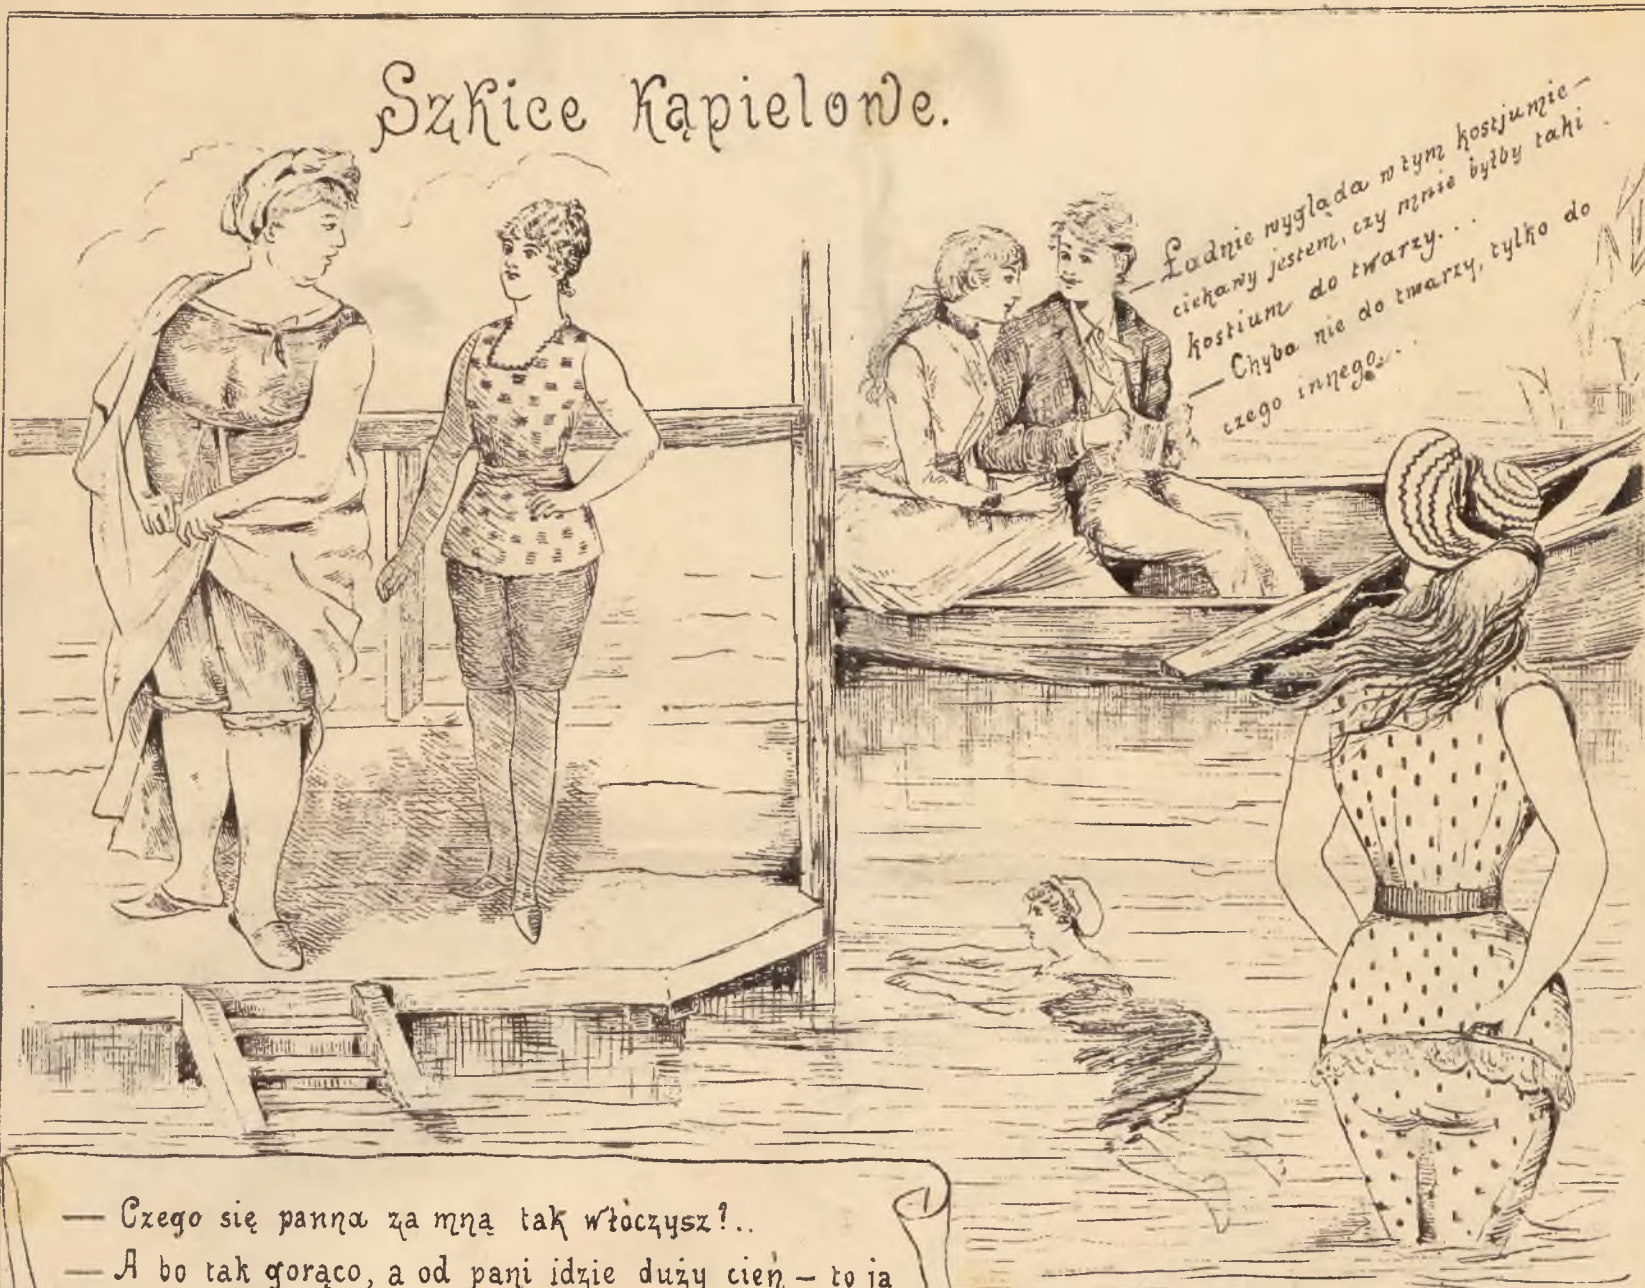 Szkice kąpielowe.
— Ładnie wygląda w tym kostjumie —
ciekawy jestem, czy mnie byłby taki
kostium do twarzy...
— Chyba nie do twarzy, tylko do
czego innego...
— Czego się panna za mną tak włóczysz?..
— A bo tak gorąco, a od pani idzie duży cień – to ja